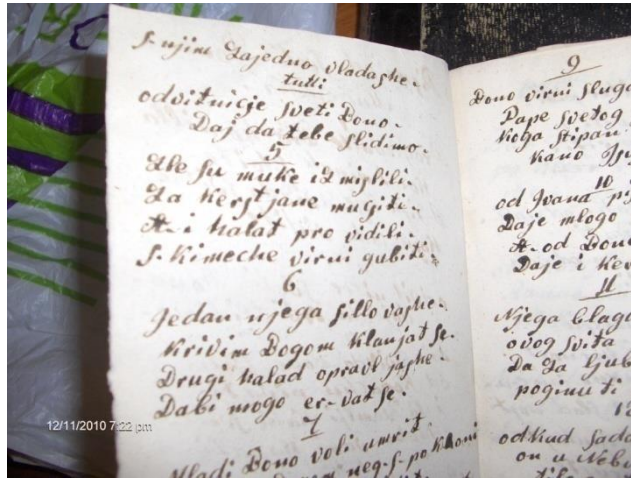 s-njim Zajedno vladashe.
tutti
odvitnicje sveti Bono.
Daj da tebe slidimo.
5
Zle su muke iz mislili.
Za Kerstjane mugiti.
A- i halat pro vidili.
s-Kimeche virni gubiti.
6
Jedan njega sillo vashe.
Krivim Bogom Klanjat se.
Drugi halad opravl jashe.
Dabi mogo er-vat se.
7
Mladi Bono voli umrit.
neg-s-po Kloni
12/11/2010 7:22 pm
9
Bono virni sluga
Pape svetog
Koga stipan
Kano
10
od Ivana
Daje mlogo
A- od Bono
Daje i Ker
11
Njega blago
ovog svita
Da Za ljub
poginu ti
od Kud sada
on u Nebu